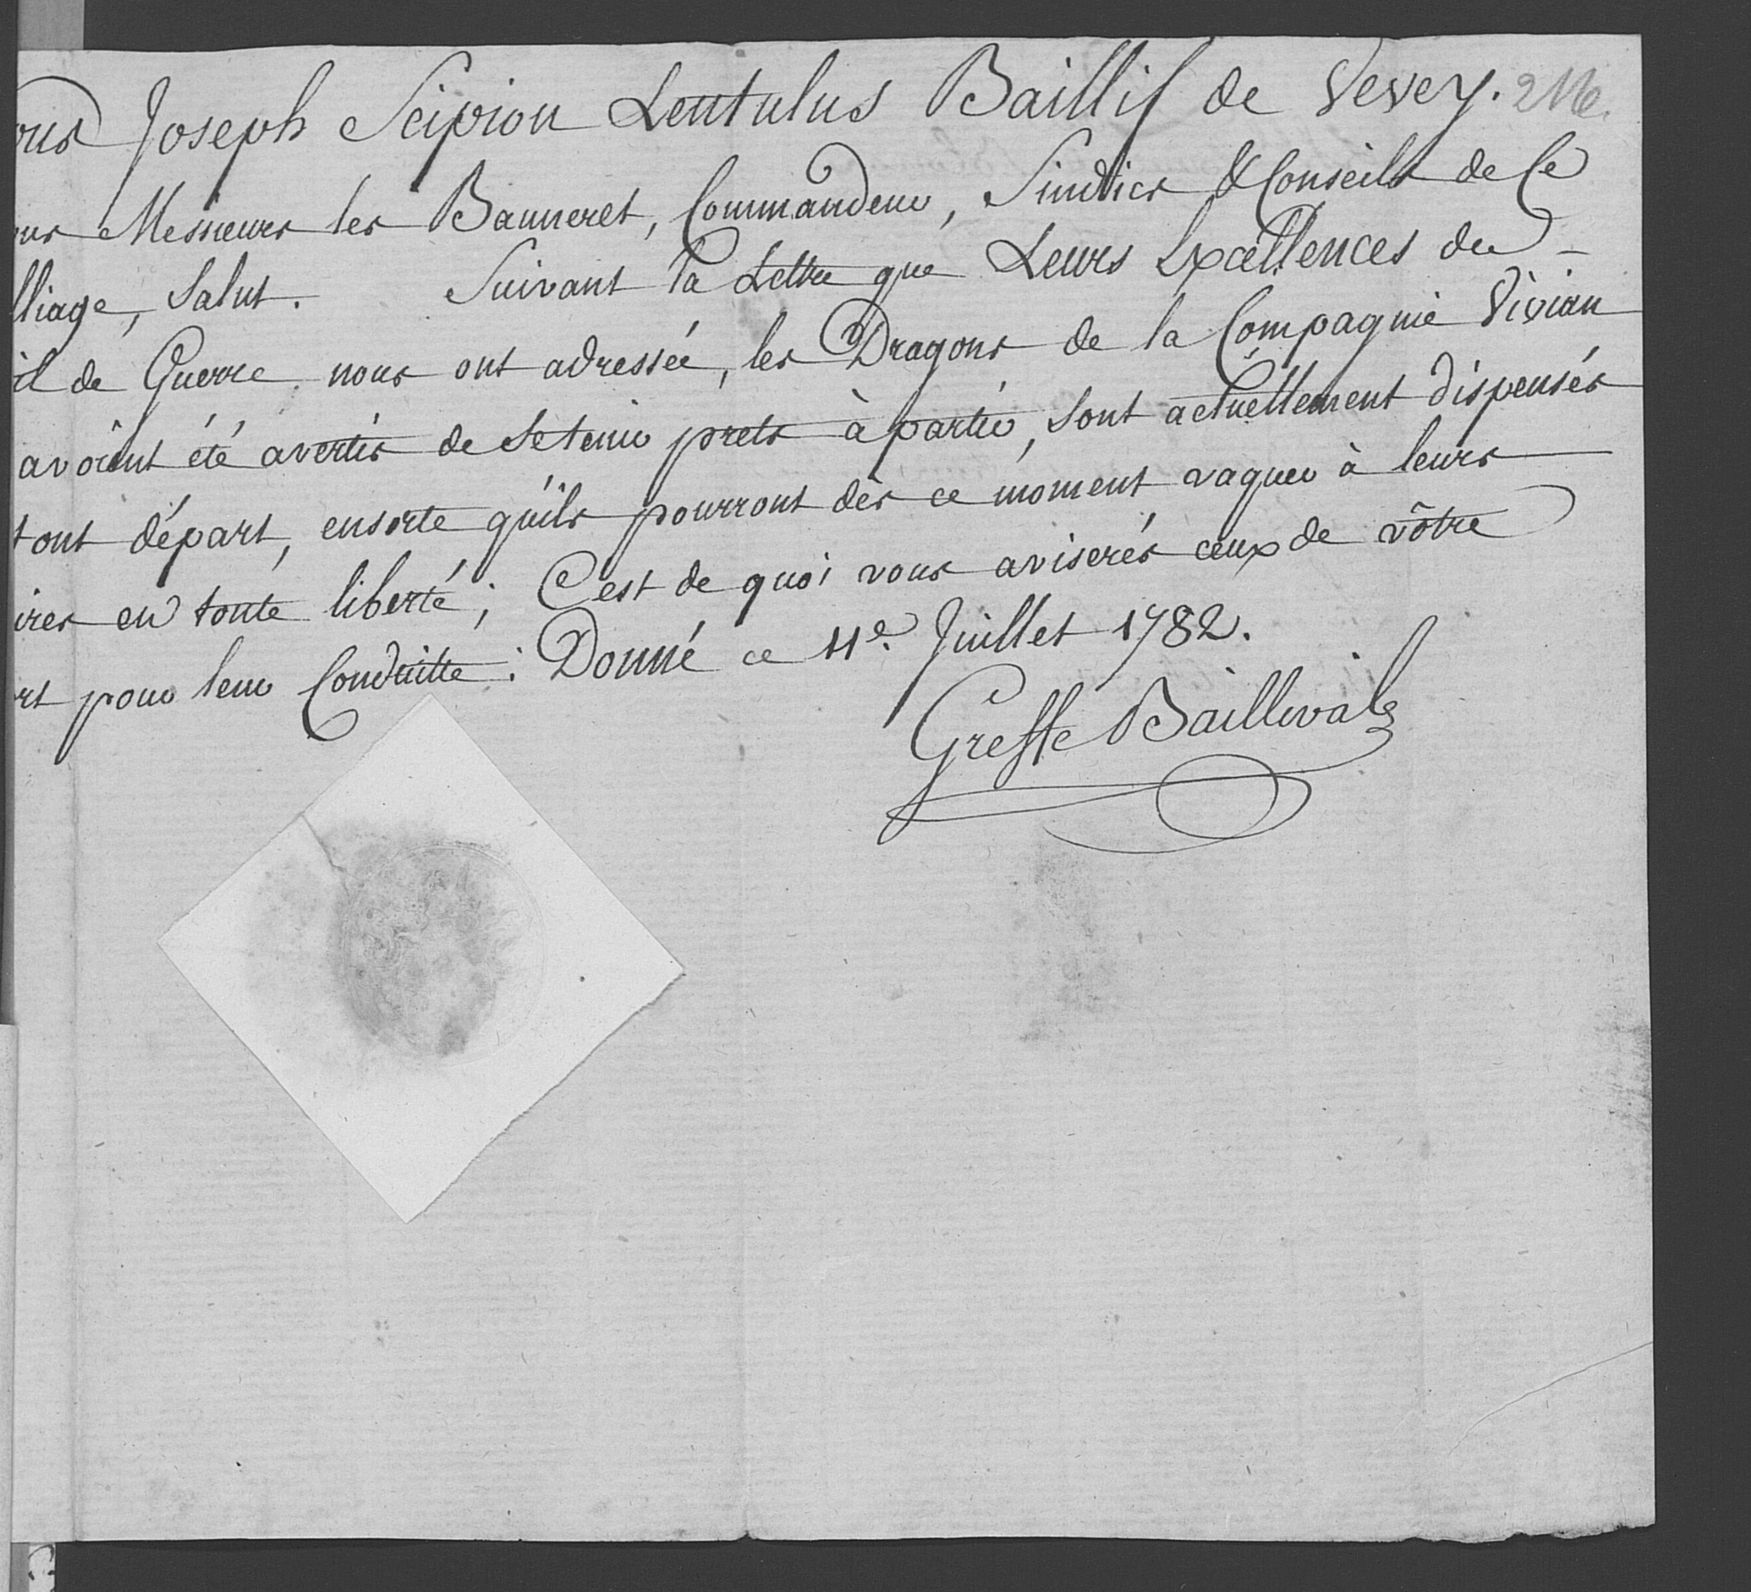 ous Joseph Scipion Lentulus Baillif de Vevey. 216.
ous Messieurs les Banneret, Commandeur, Sindics & Conseils de Ce
lliage, Salut. Suivant la Lettre que Leurs Excellences du
il de Guerre nous ont adressée, les Dragons de la Compagnie Vivian
avoïent été avertis de se tenir prets à partir, sont actuellement dispensés
tout départ, ensorte qu'ils pourront dès ce moment vaquer à leurs
ires en toute liberté; C'est de quoi vous aviserés ceux de vôtre
rt pour leur Conduitte: Donné ce 11e. Juillet 1782.
Greffe Baillival